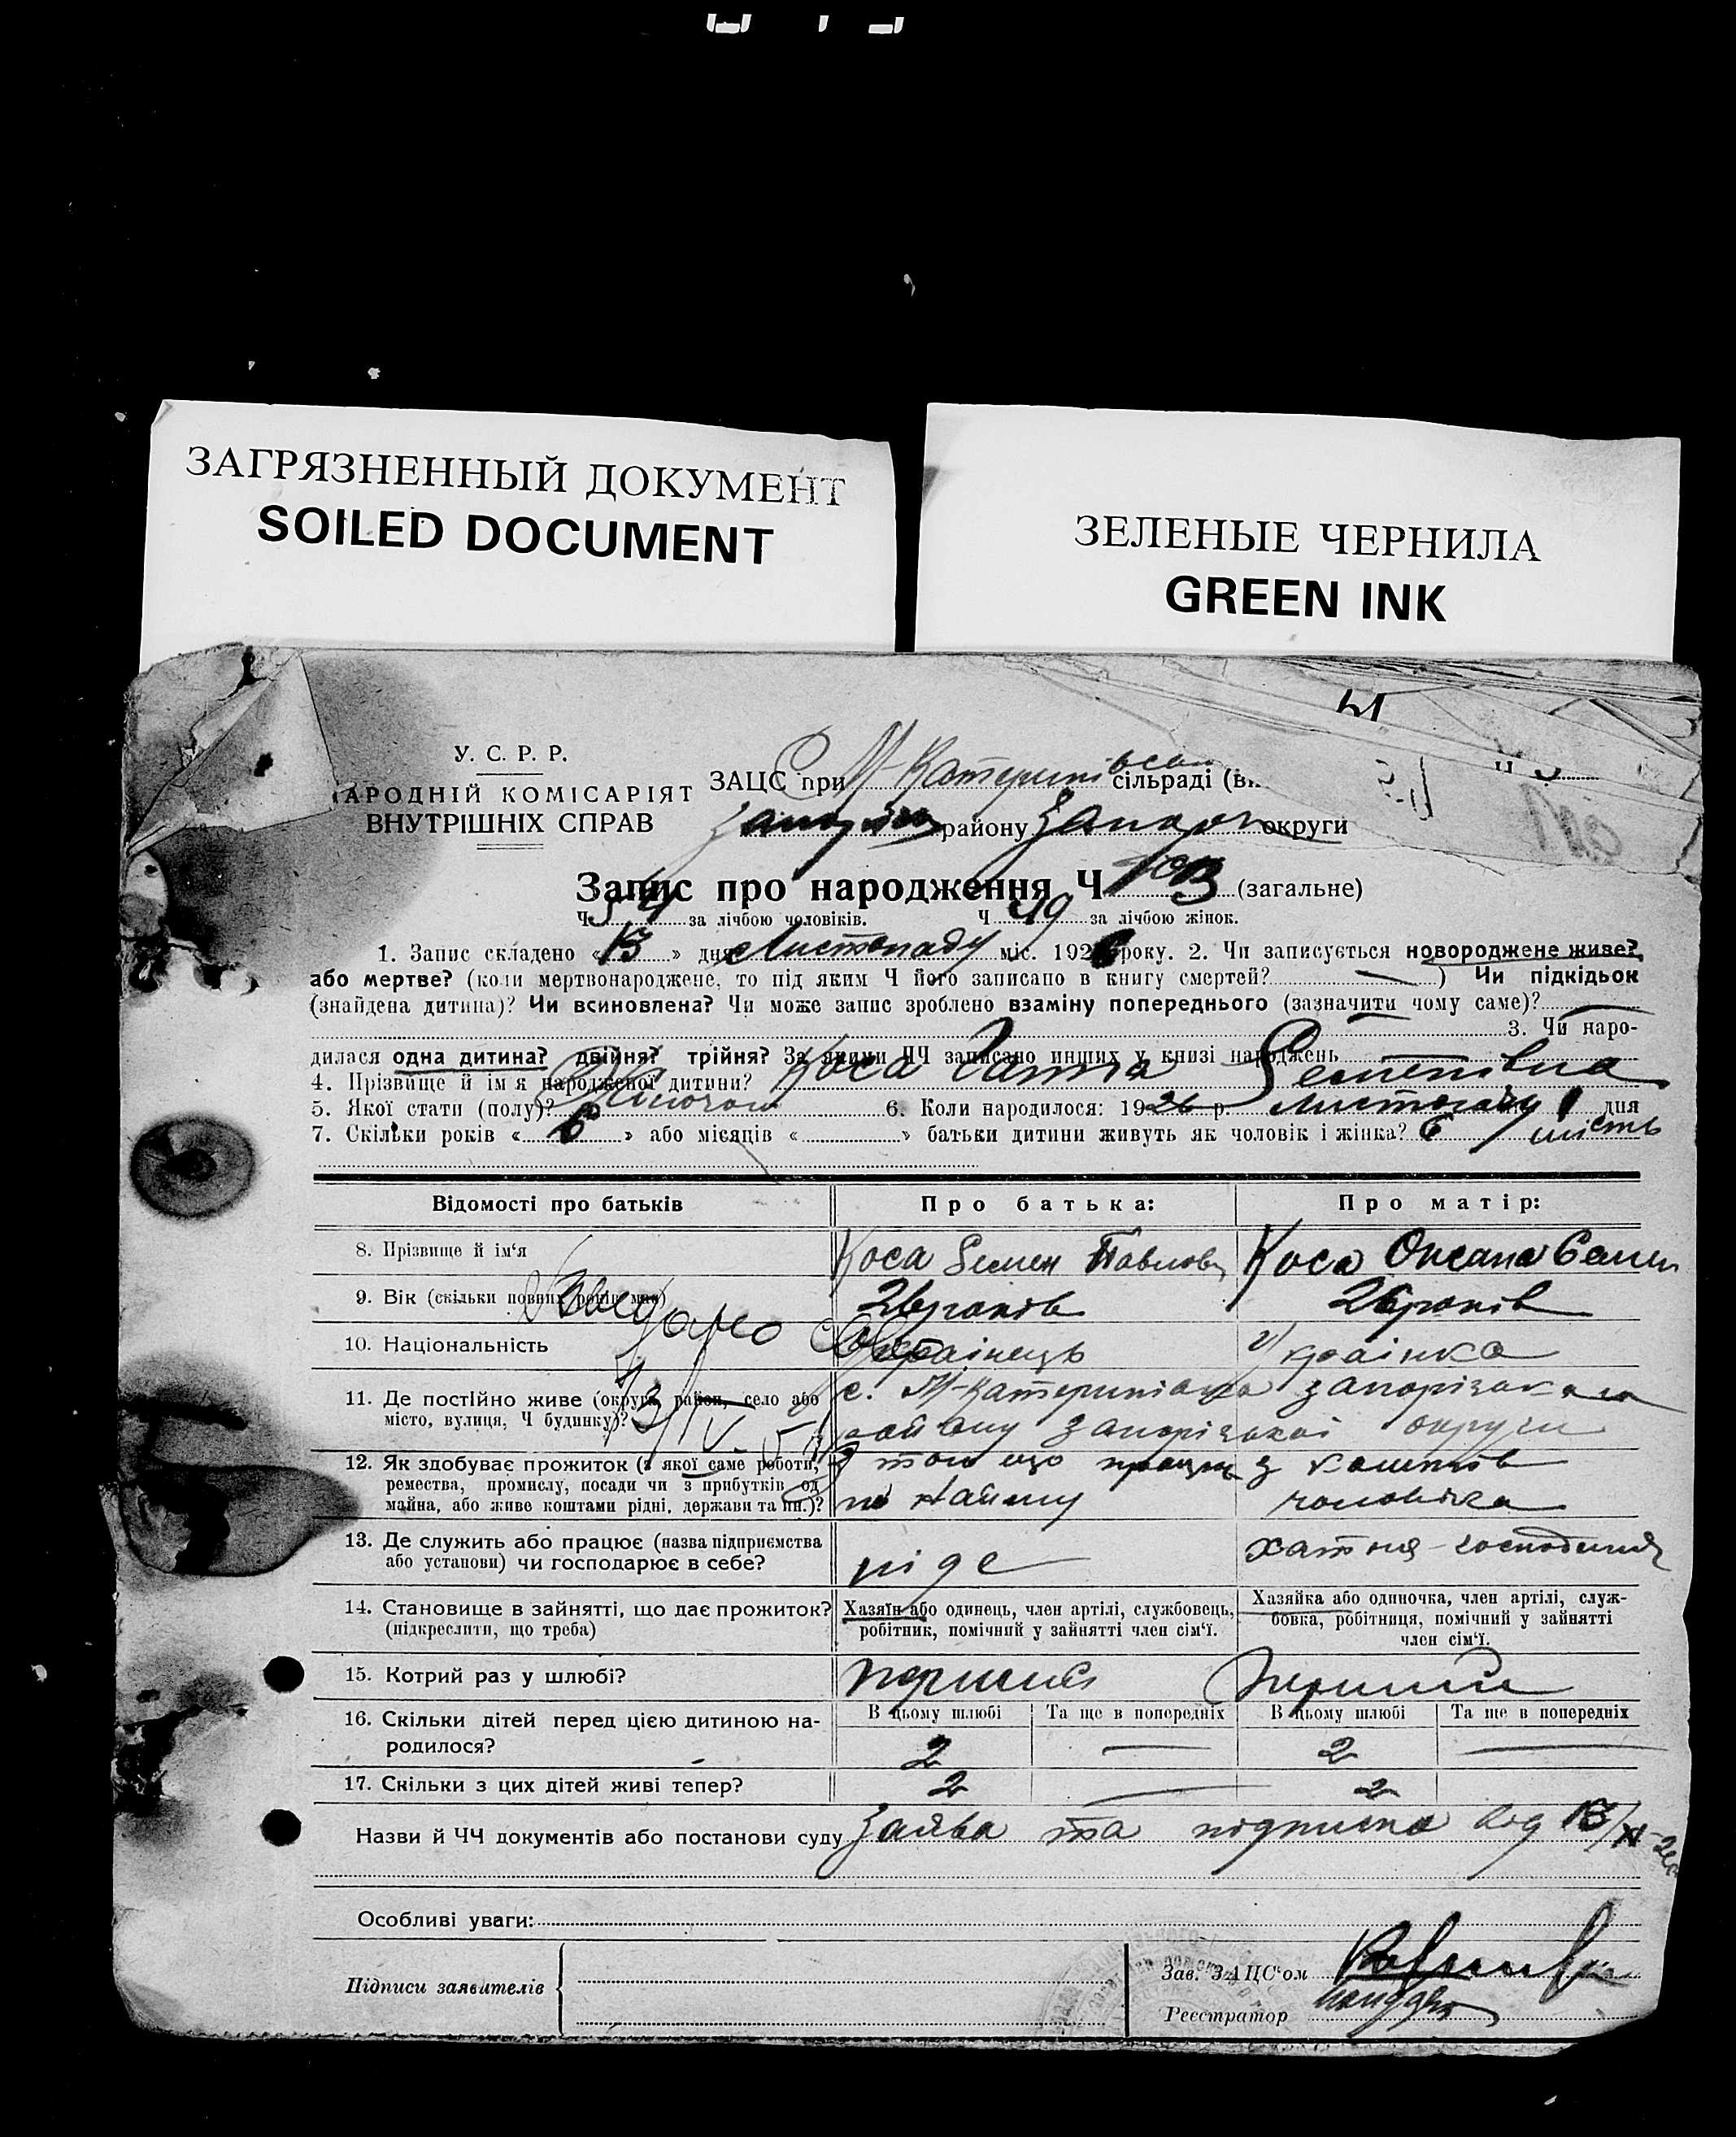 ЗАГРЯЗНЕННЫЙ ДОКУМЕНТ
SOILED DOCUMENT
ЗЕЛЕНЫЕ ЧЕРНИЛА
GREEN INK
У. С. Р. Р.
АРОДНІЙ КОМІСАРІЯТ
ВНУТРІШНІХ СПРАВ
ЗАЦС при М-Катеринівськ сільраді (ви
району Запоріз округи
Запис про народження Ч 103 (загальне)
Ч 54 за лічбою чоловіків. Ч 49 за лічбою жінок.
1. Запис складено «13» дня Листопаду міс. 1926 року. 2. Чи записується новороджене живе?
або мертве? (коли мертвонароджене, то під яким Ч його записано в книгу смертей? —) Чи підкідьок
(знайдена дитина)? Чи всиновлена? Чи може запис зроблено взаміну попереднього (зазначити чому саме)? —
3. Чи наро-
дилася одна дитина? двійня? трійня? За якими ЧЧ записано инших у книзі народжень —
4. Прізвище й ім'я народженої дитини? Коса Ганна Семенівна
5. Якої стати (полу)? Жіночої 6. Коли народилося: 1926 р. Листопаду 1 дня
7. Скільки років «6» або місяців « » батьки дитини живуть як чоловік і жінка? 6 шість
Відомості про батьків Про батька: Про матір:
8. Прізвище й ім'я Коса Семен Павлов Коса Оксана Семен
9. Вік (скільки повних років має) 26 років 26 років
10. Національність Українець Українка
11. Де постійно живе (округа, район, село або с. М-Катеринівка Запорізького
місто, вулиця, Ч будинку)? району Запорізької округи
12. Як здобуває прожиток (з якої саме роботи, З того що працює з коштів
ремества, промислу, посади чи з прибутків од по найму чоловіка
майна, або живе коштами рідні, держави та ин.)?
13. Де служить або працює (назва підприємства ніде хатня-господиня
або установи) чи господарює в себе?
14. Становище в зайнятті, що дає прожиток? Хазяїн або одинець, член артілі, службовець, Хазяйка або одиночка, член артілі, служ-
(підкреслити, що треба) робітник, помічний у зайнятті член сім'ї. бовка, робітниця, помічний у зайнятті
член сім'ї.
15. Котрий раз у шлюбі? перший перший
16. Скільки дітей перед цією дитиною на- В цьому шлюбі Та ще в попередніх В цьому шлюбі Та ще в попередніх
родилося? 2 — 2 —
17. Скільки з цих дітей живі тепер? 2 — 2
Назви й ЧЧ документів або постанови суду Заява та підписка від 13/XI-26
Особливі уваги:
Підписи заявителів
Зав. ЗАЦС'ом
Реєстратор